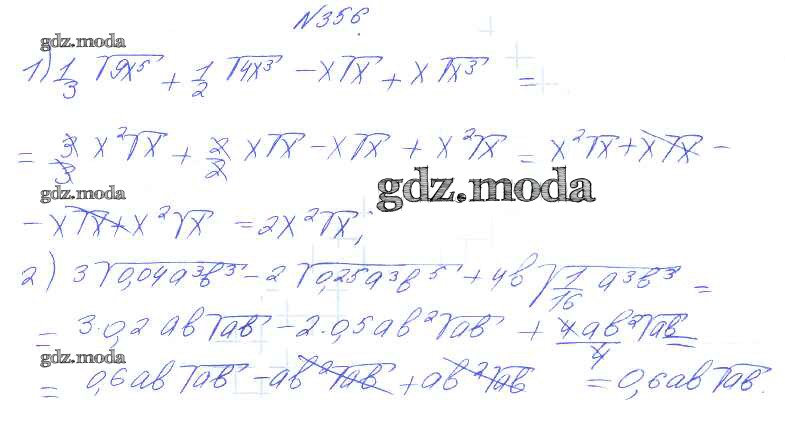 №356.
gdz.moda
1) 1/3 √9x⁵ + 1/2 √4x³ − x√x + x√x³ =
= 3/3 x²√x + 2/2 x√x − x√x + x²√x = x²√x + x√x −
gdz.moda
gdz.moda
− x√x + x²√x = 2x²√x;
2) 3√0,04a³b³ − 2√0,25a³b⁵ + 4b√1/16 a³b³ =
= 3·0,2ab√ab − 2·0,5ab²√ab + 4ab²√ab/4 =
gdz.moda
= 0,6ab√ab − ab²√ab + ab²√ab = 0,6ab√ab.